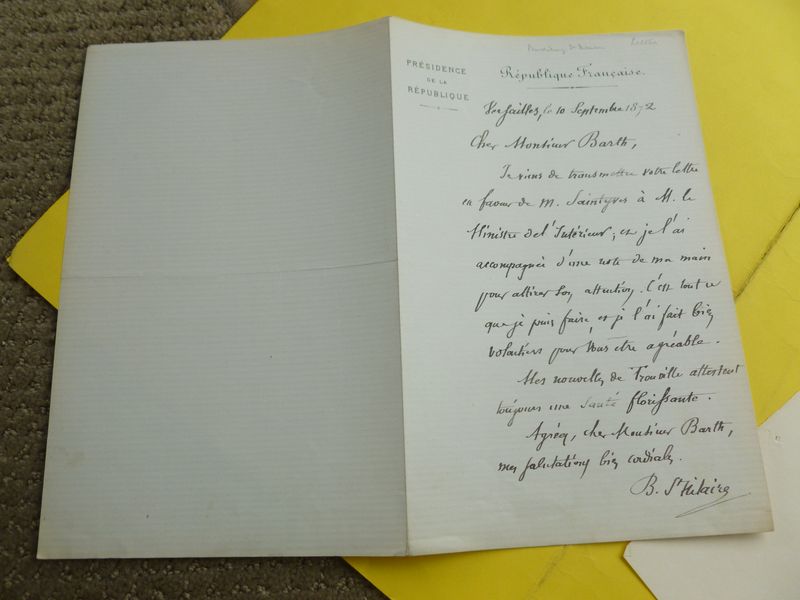 PRÉSIDENCE
DE LA
RÉPUBLIQUE
République Française.
Versailles, le 10 Septembre 1872
Cher Monsieur Barth,
Je viens de transmettre votre lettre
en faveur de M. Saintyves à M. le
Ministre de l'Intérieur; et je l'ai
accompagnée d'une note de ma main
pour attirer son attention. C'est tout ce
que je puis faire, et je l'ai fait bien
volontiers pour vous être agréable.
Mes nouvelles de Trouville attestent
toujours une santé florissante.
Agréez, cher Monsieur Barth,
mes salutations bien cordiales.
B. St Hilaire